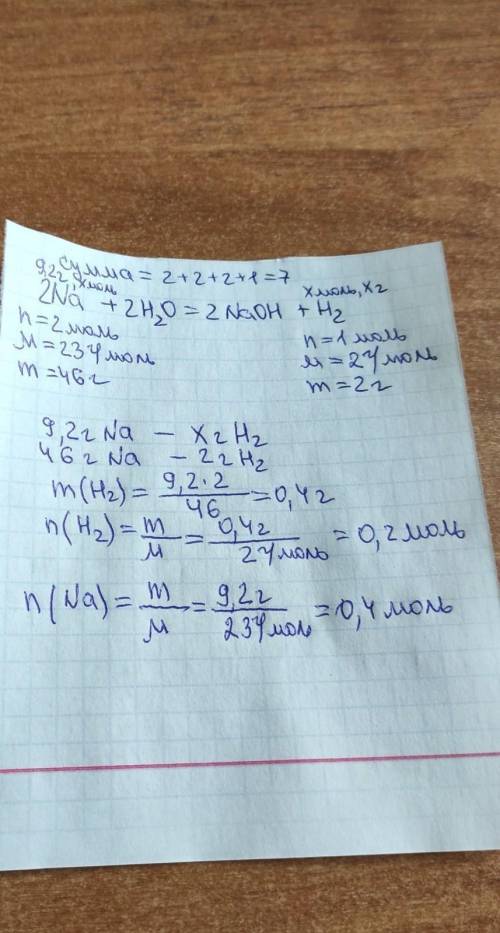 Сумма = 2+2+2+1=7
9,2г, x моль
x моль, x г
2Na + 2H₂O = 2NaOH + H₂
n=2моль
n=1моль
M=23г/моль
M=2г/моль
m=46г
m=2г
9,2г Na – x г H₂
46г Na – 2г H₂
m(H₂) = 9,2·2/46 = 0,4г
n(H₂) = m/M = 0,4г/2г/моль = 0,2моль
n(Na) = m/M = 9,2г/23г/моль = 0,4моль